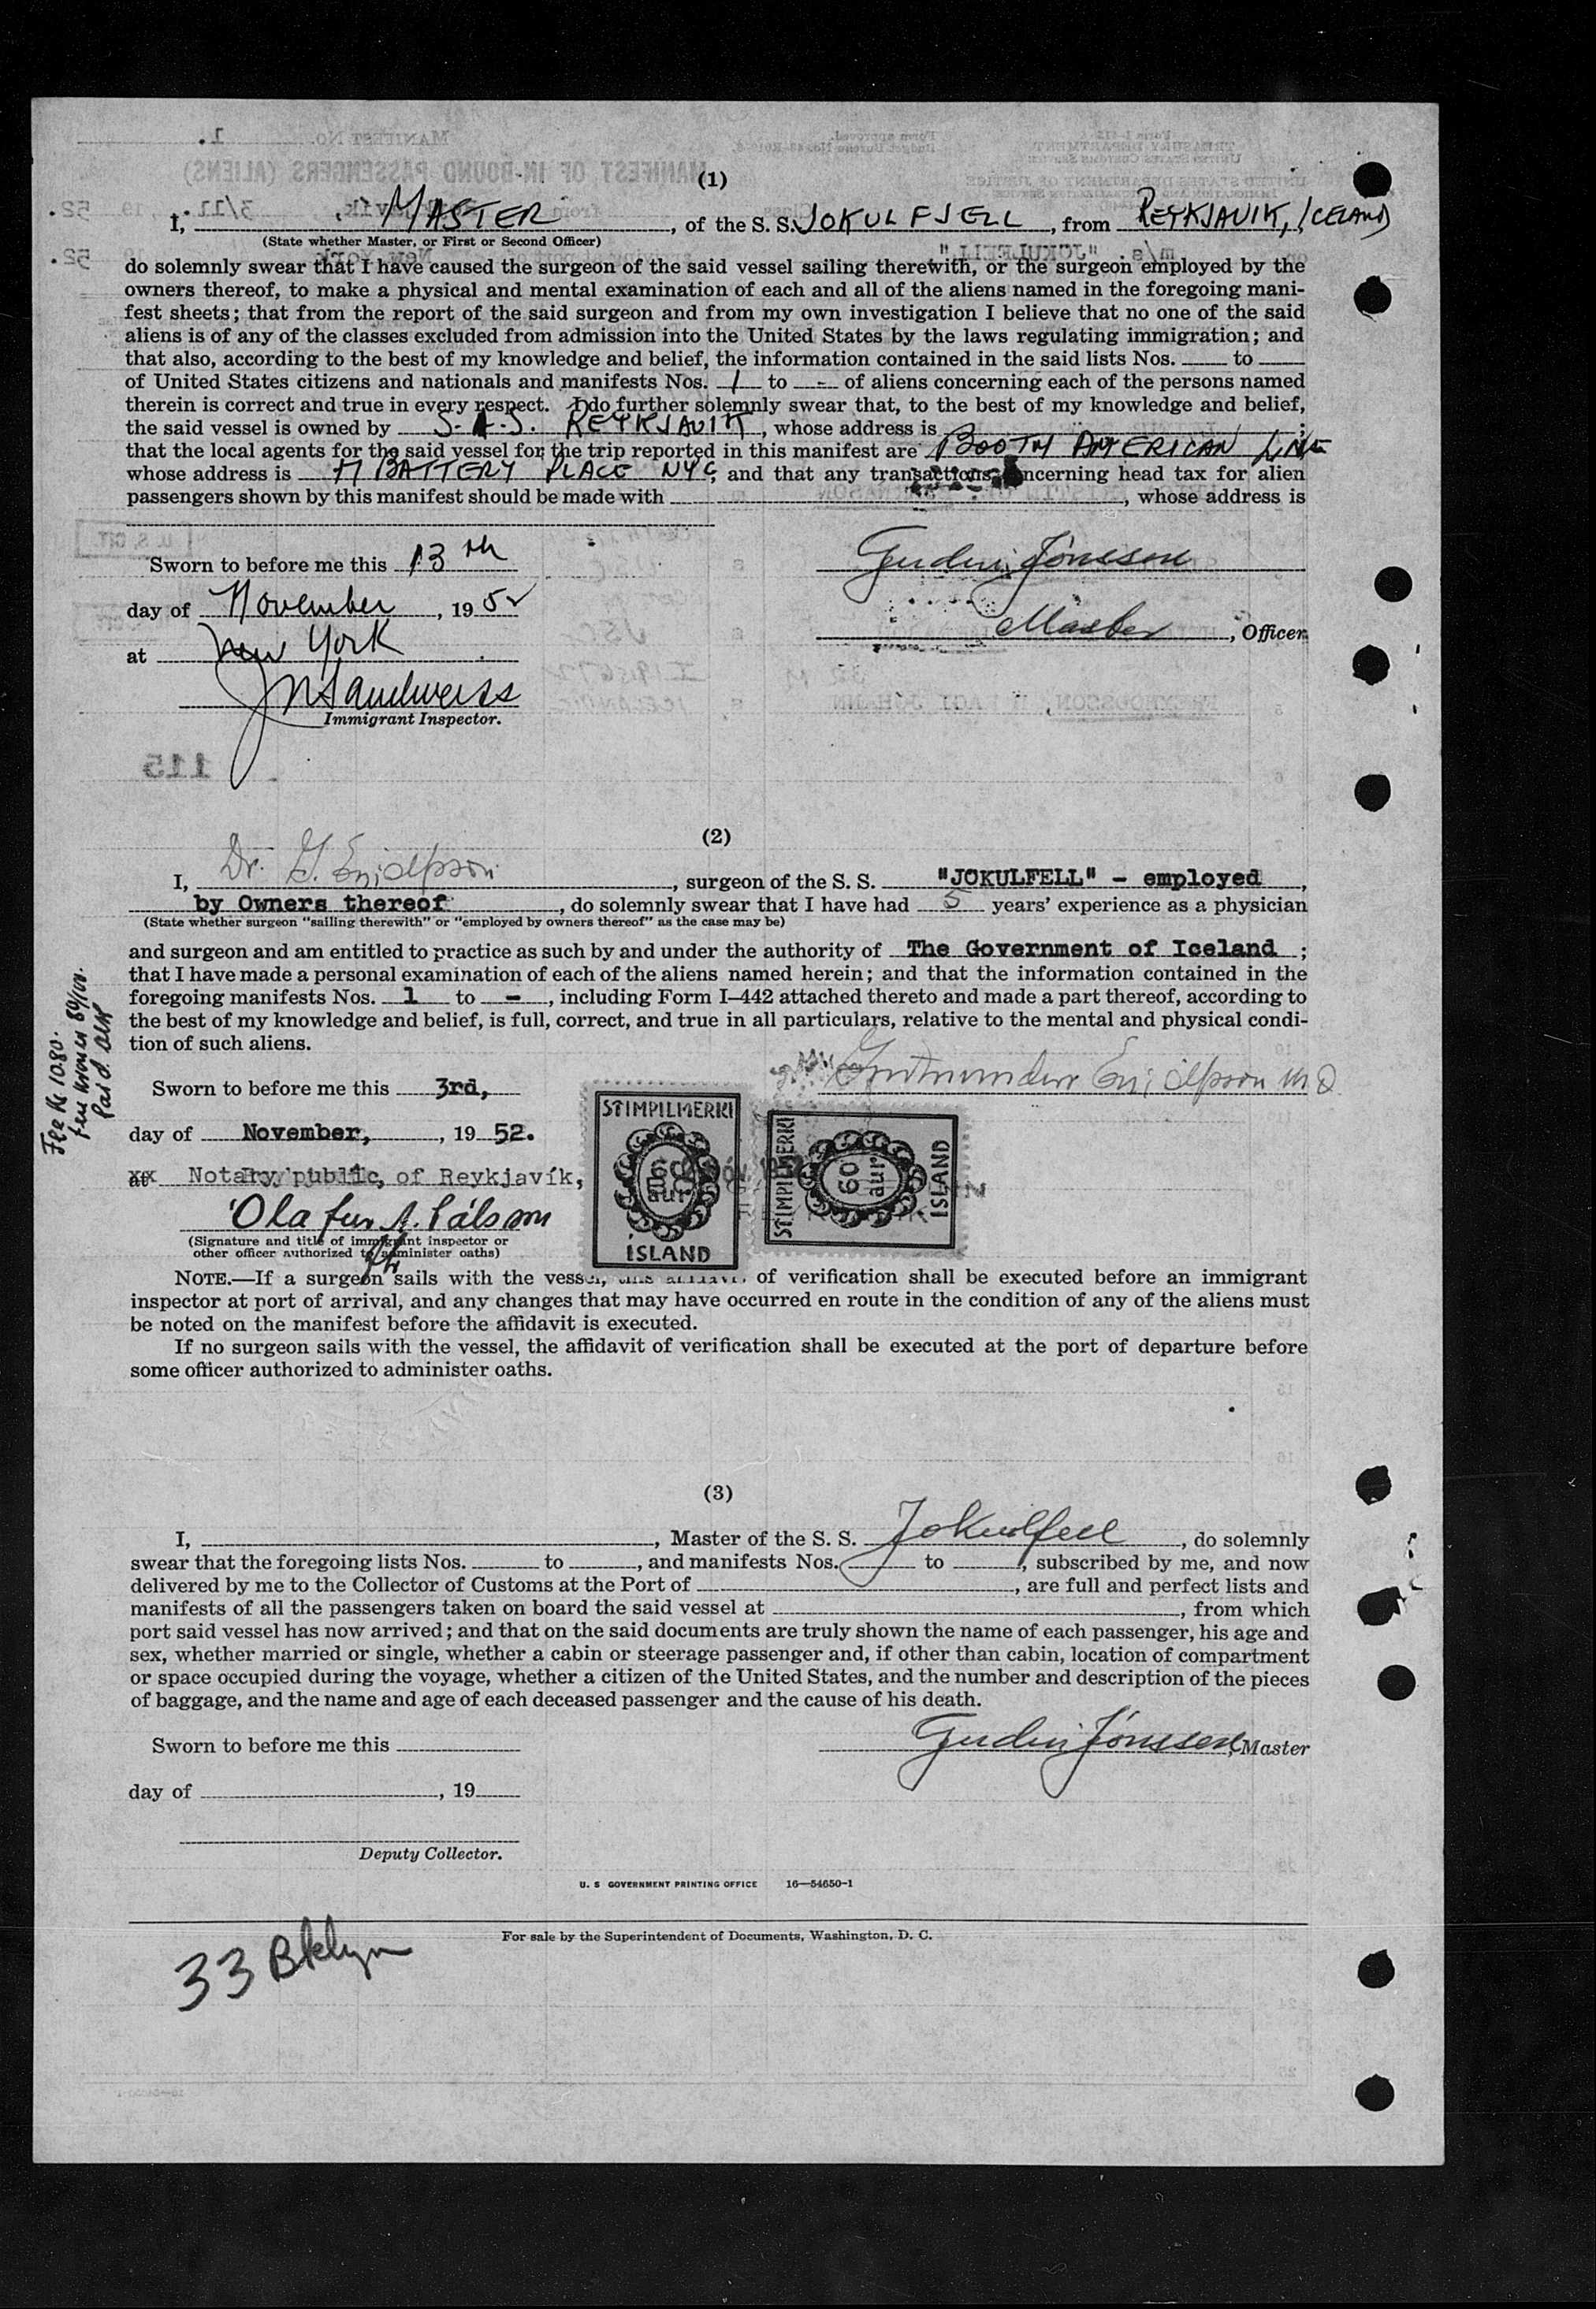 (1)
I, MASTER, of the S. S. JOKULFJELL, from REYKJAVIK, ICELAND
(State whether Master, or First or Second Officer)
do solemnly swear that I have caused the surgeon of the said vessel sailing therewith, or the surgeon employed by the
owners thereof, to make a physical and mental examination of each and all of the aliens named in the foregoing mani-
fest sheets; that from the report of the said surgeon and from my own investigation I believe that no one of the said
aliens is of any of the classes excluded from admission into the United States by the laws regulating immigration; and
that also, according to the best of my knowledge and belief, the information contained in the said lists Nos. to
of United States citizens and nationals and manifests Nos. 1 to - of aliens concerning each of the persons named
therein is correct and true in every respect. I do further solemnly swear that, to the best of my knowledge and belief,
the said vessel is owned by REYKJAVIK, whose address is ;
that the local agents for the said vessel for the trip reported in this manifest are BOOTH AMERICAN LINE
whose address is BATTERY PLACE NYC; and that any transactions concerning head tax for alien
passengers shown by this manifest should be made with , whose address is
Sworn to before me this 13th
Gudni Jónsson
day of November, 1952
Master, Officer.
at New York
JN Sandweiss
Immigrant Inspector.
115
(2)
I, Dr. G., surgeon of the S. S. "JOKULFELL" - employed,
by Owners thereof, do solemnly swear that I have had 5 years' experience as a physician
(State whether surgeon "sailing therewith" or "employed by owners thereof" as the case may be)
and surgeon and am entitled to practice as such by and under the authority of The Government of Iceland;
that I have made a personal examination of each of the aliens named herein; and that the information contained in the
foregoing manifests Nos. 1 to -, including Form I–442 attached thereto and made a part thereof, according to
the best of my knowledge and belief, is full, correct, and true in all particulars, relative to the mental and physical condi-
tion of such aliens.
Fee Kr 10.80.
Paid
Sworn to before me this 3rd,
M D
day of November, 1952.
at Notary public, of Reykjavík,
STIMPILMERKI
60
aur
ÍSLAND
STIMPILMERKI
60
aur
ISLAND
Olafur A. Pálsson
(Signature and title of immigrant inspector or
other officer authorized to administer oaths)
NOTE.—If a surgeon sails with the vessel, this affidavit of verification shall be executed before an immigrant
inspector at port of arrival, and any changes that may have occurred en route in the condition of any of the aliens must
be noted on the manifest before the affidavit is executed.
If no surgeon sails with the vessel, the affidavit of verification shall be executed at the port of departure before
some officer authorized to administer oaths.
(3)
I, , Master of the S. S. Jokulfell, do solemnly
swear that the foregoing lists Nos. to , and manifests Nos. to , subscribed by me, and now
delivered by me to the Collector of Customs at the Port of , are full and perfect lists and
manifests of all the passengers taken on board the said vessel at , from which
port said vessel has now arrived; and that on the said documents are truly shown the name of each passenger, his age and
sex, whether married or single, whether a cabin or steerage passenger and, if other than cabin, location of compartment
or space occupied during the voyage, whether a citizen of the United States, and the number and description of the pieces
of baggage, and the name and age of each deceased passenger and the cause of his death.
Sworn to before me this
Gudni Jónsson, Master
day of , 19
Deputy Collector.
U. S GOVERNMENT PRINTING OFFICE 16—54650-1
For sale by the Superintendent of Documents, Washington, D. C.
33 Bklyn